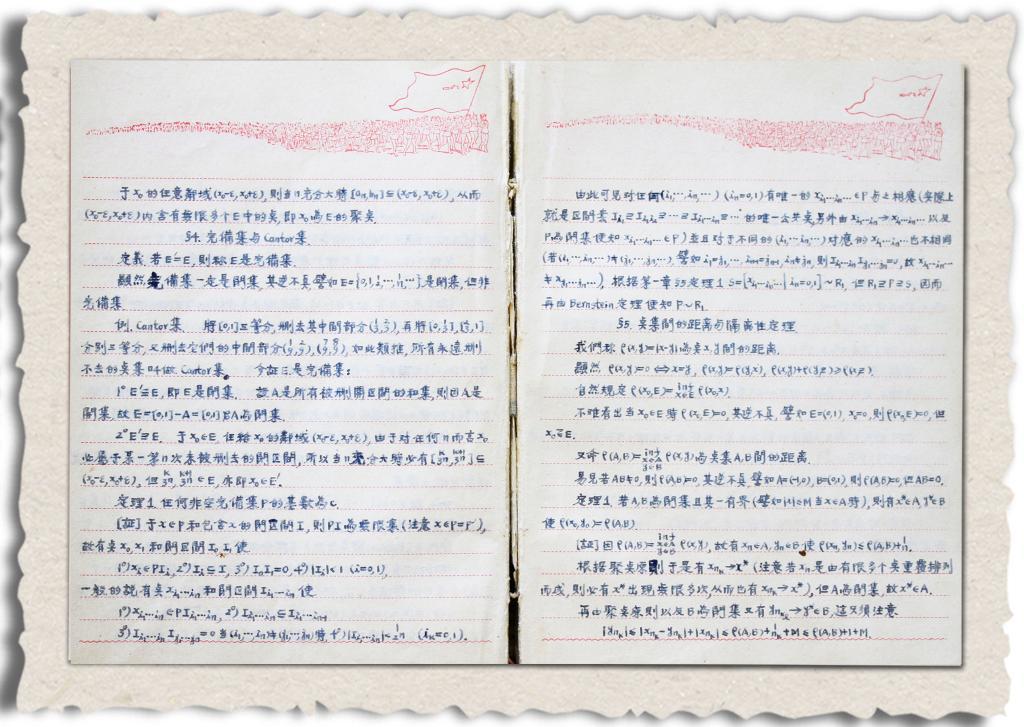 于x₀的任意鄰域(x₀-ε, x₀+ε), 則当n充分大時[aₙ,bₙ]⊆(x₀-ε, x₀+ε), 从而
(x₀-ε, x₀+ε)内含有無限多个E中的奌, 即x₀爲E的聚奌.
§4. 完備集与Cantor集
定義 若E′=E, 則称E是完備集.
顯然完備集一定是閉集, 其逆不真, 譬如E=[0,1,…,是閉集, 但非
完備集.
例. Cantor集 將[0,1]三等分, 删去其中間部分(1/3,2/3), 再將[0,1/3],[2/3,1]
分别三等分, 又删去它們的中間部分(1/9,2/9),(7/9,8/9), 如此類推, 所有永遠删
不去的奌集叫做Cantor集. 今証E是完備集:
1° E′⊆E, 即E是閉集. 設A是所有被删開区間的和集, 則因A是
開集, 故E=[0,1]-A=[0,1]爲閉集.
2° E′⊇E. 于x₀∈E, 任給x₀的鄰域(x₀-ε, x₀+ε), 由于对任何n而言x₀
必属于某一第n次未被删去的閉区間, 所以当n充分大時必有[k/3ⁿ, k+1/3ⁿ]⊆
(x₀-ε, x₀+ε), 但k/3ⁿ, k+1/3ⁿ∈E, 亦即x₀∈E′.
定理1. 任何非空完備集P的基数为c.
[証] 于x∈P和包含x的開区間I, 則PI爲無限集(注意x∈P=P′),
故有奌x₀, x₁和閉区間I₀, I₁使
1°) xᵢ∈PIᵢ, 2°) Iᵢ⊆I, 3°) I₀I₁=0, 4°) |Iᵢ|<1 (i=0,1),
一般的説有奌x_{i₁…iₙ}和閉区間I_{i₁…iₙ}使
1°) x_{i₁…iₙ}∈PI_{i₁…iₙ}, 2°) I_{i₁…iₙ}⊆I_{i₁…iₙ₋₁}
3°) I_{i₁…iₙ}I_{j₁…jₙ}=0 当(i₁,…iₙ)≠(j₁,…jₙ)時 4°) |I_{i₁…iₙ}|<1/2ⁿ (iₖ=0,1).
由此可見对任(i₁,…,iₙ,…) (iₙ=0,1)有唯一的x_{i₁…iₙ…}∈P与之相應(实際上
就是区間套I_{i₁}⊇I_{i₁i₂}⊇…⊇I_{i₁…iₙ}⊇…的唯一公共奌, 另外由x_{i₁…iₙ}→x_{i₁…iₙ…}以及
P爲閉集便知x_{i₁…iₙ…}∈P)並且对于不同的(i₁,…iₙ…)对應的x_{i₁…iₙ…}也不相同
(若(i₁,…iₙ…)≠(j₁,…jₙ…), 譬如i₁=j₁,…iₙ₋₁=jₙ₋₁, iₙ≠jₙ, 則I_{i₁…iₙ}I_{j₁…jₙ}=0, 故x_{i₁…iₙ…}
≠x_{j₁…jₙ…}). 根据第一章§3定理1 S=[x_{i₁…iₙ…}|iₙ=0,1]~R₁, 但R₁⊇P⊇S, 因而
再由Bernstein定理便知P~R₁.
§5. 奌集間的距离与隔离性定理
我們称ρ(x,y)=|x-y|爲奌x,y間的距离.
顯然ρ(x,y)=0⇔x=y, ρ(x,y)=ρ(y,x), ρ(x,y)+ρ(y,z)≥ρ(x,z).
自然規定ρ(x₀,E)=inf_{x∈E}ρ(x₀,x).
不难看出当x₀∈E時ρ(x₀,E)=0, 其逆不真, 譬如E=(0,1), x₀=0, 則ρ(x₀,E)=0, 但
x₀∉E.
又命ρ(A,B)=inf_{x∈A, y∈B}ρ(x,y)爲奌集A,B間的距离.
易見若AB≠0, 則ρ(A,B)=0, 其逆不真, 譬如A=(-1,0), B=(0,1), 則ρ(A,B)=0, 但AB=0.
定理1. 若A,B爲閉集且其一有界(譬如|x|≤M当x∈A時), 則有x*∈A, y*∈B
使ρ(x₀,y₀)=ρ(A,B).
[証] 因ρ(A,B)=inf_{x∈A, y∈B}ρ(x,y), 故有xₙ∈A, yₙ∈B使ρ(xₙ,yₙ)≤ρ(A,B)+1/n.
根据聚奌原則于是有x_{nₖ}→x* (注意若xₙ是由有限多个奌重覆排列
而成, 則必有x*出現無限多次, 从而也有x_{nₖ}→x*), 但A爲閉集, 故x*∈A.
再由聚奌原則以及B爲閉集又有y_{nₖ}→y*∈B, 這又須注意
|y_{nₖ}|≤|x_{nₖ}-y_{nₖ}|+|x_{nₖ}|≤ρ(A,B)+1/nₖ+M≤ρ(A,B)+1+M.